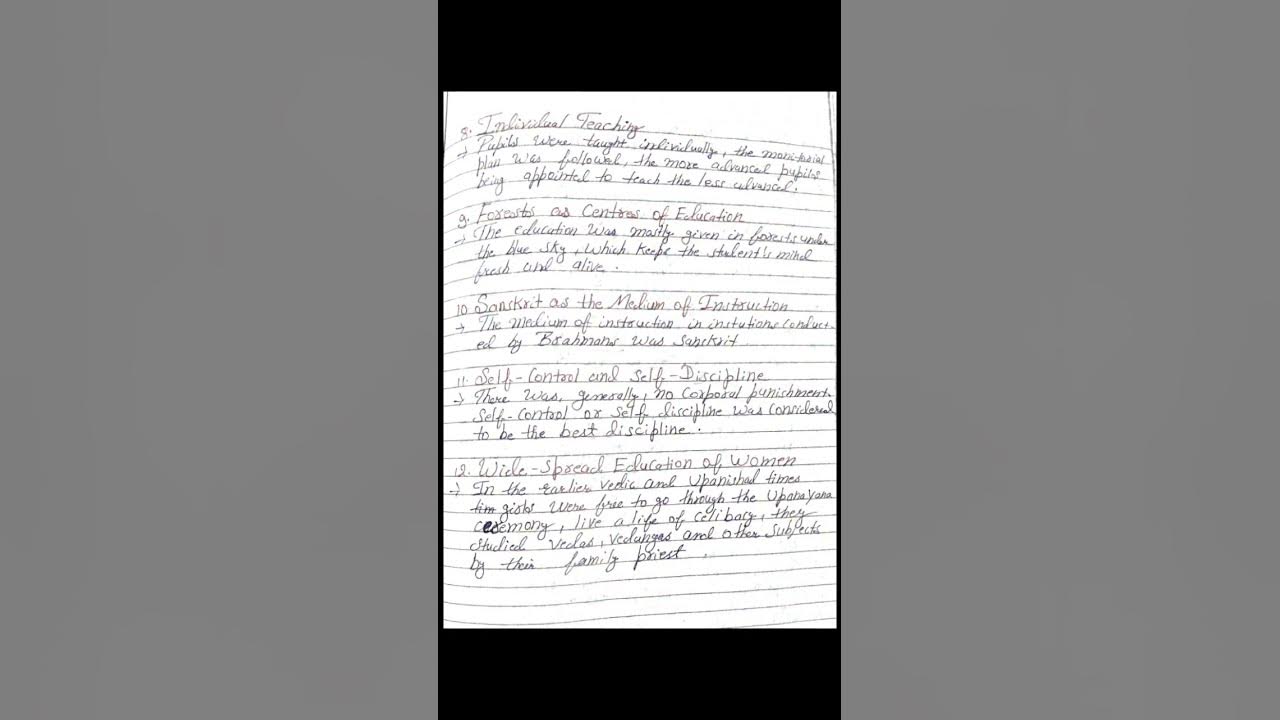 8. Individual Teaching
→ Pupils were taught individually, the monitorial
plan was followed, the more advanced pupils
being appointed to teach the less advanced.
9. Forests as Centres of Education
→ The education was mostly given in forests under
the blue sky, which keeps the student's mind
fresh and alive.
10 Sanskrit as the Medium of Instruction
→ The Medium of instruction in instutions conduct-
ed by Brahmans was Sanskrit.
11. Self-Control and Self-Discipline
→ There was, generally, no corporal punishment.
Self-Control or Self discipline was considered
to be the best discipline.
12. Wide-Spread Education of Women
→ In the earlier Vedic and Upanishad times
tim girls were free to go through the Upanayana
ceremony, live a life of celibacy, they
studied Vedas, Vedangas and other subjects
by their family priest.